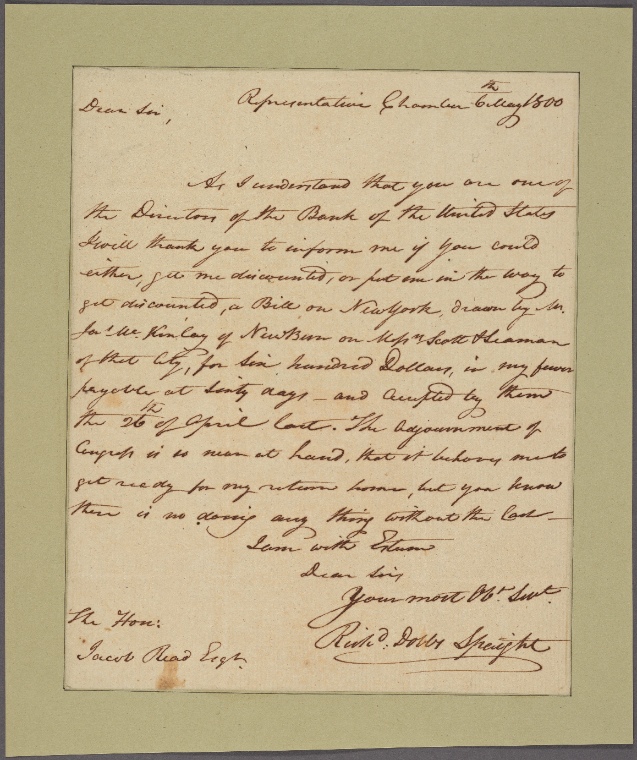 Representative Chamber 6th May 1800
Dear Sir,
As I understand that you are one of
the Directors of the Bank of the United States
I will thank you to inform me if you could
either, get me discounted, or put me in the way to
get discounted, a Bill on New York, drawn by Mr.
Jas. Mc.Kinlay of New Bern on Messrs Scott & Seaman
of that City, for Six hundred Dollars, in my favor
payable at Sixty days – and accepted by them
the 26th of April last. The adjournment of
Congress is so near at hand, that it behoves me to
get ready for my return home, but you know
there is no doing any thing without the Cash –
I am with Esteem
Dear Sir,
Your most Obt. Servt.
Richd. Dobbs Spaight
The Hon:
Jacob Read Esqr.